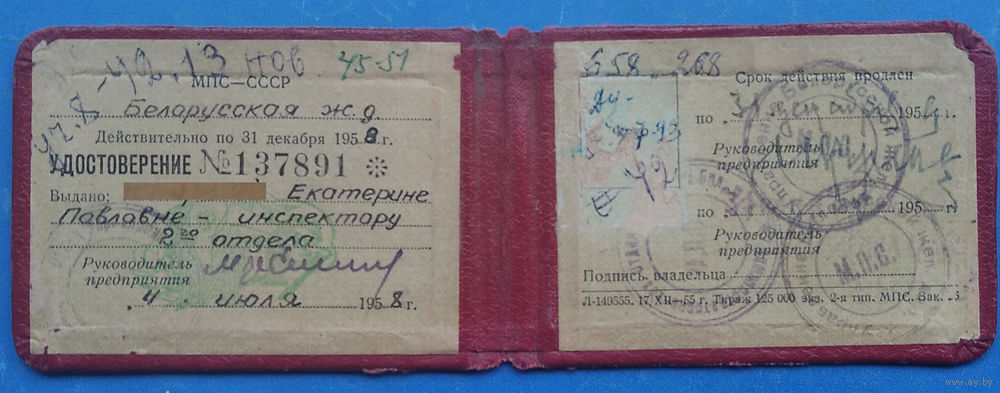 уч. 8 - 42. 13 нов 45-51
МПС—СССР
Белорусская ж.д.
Действительно по 31 декабря 1958 г.
УДОСТОВЕРЕНИЕ №137891 *
Выдано: Екатерине
Павлавне - инспектару
2го отдела
Руководитель
предприятия
„4“ июля 1958 г.
558. 268
Срок действия продлен
по 195 г.
Руководитель
предприятия
по 195 г.
Руководитель
предприятия
М.П.С.
Подпись владельца
Л-149655. 17/XII—55 г. Тираж 125 000 экз. 2-я тип. МПС. Зак.
www.ay.by